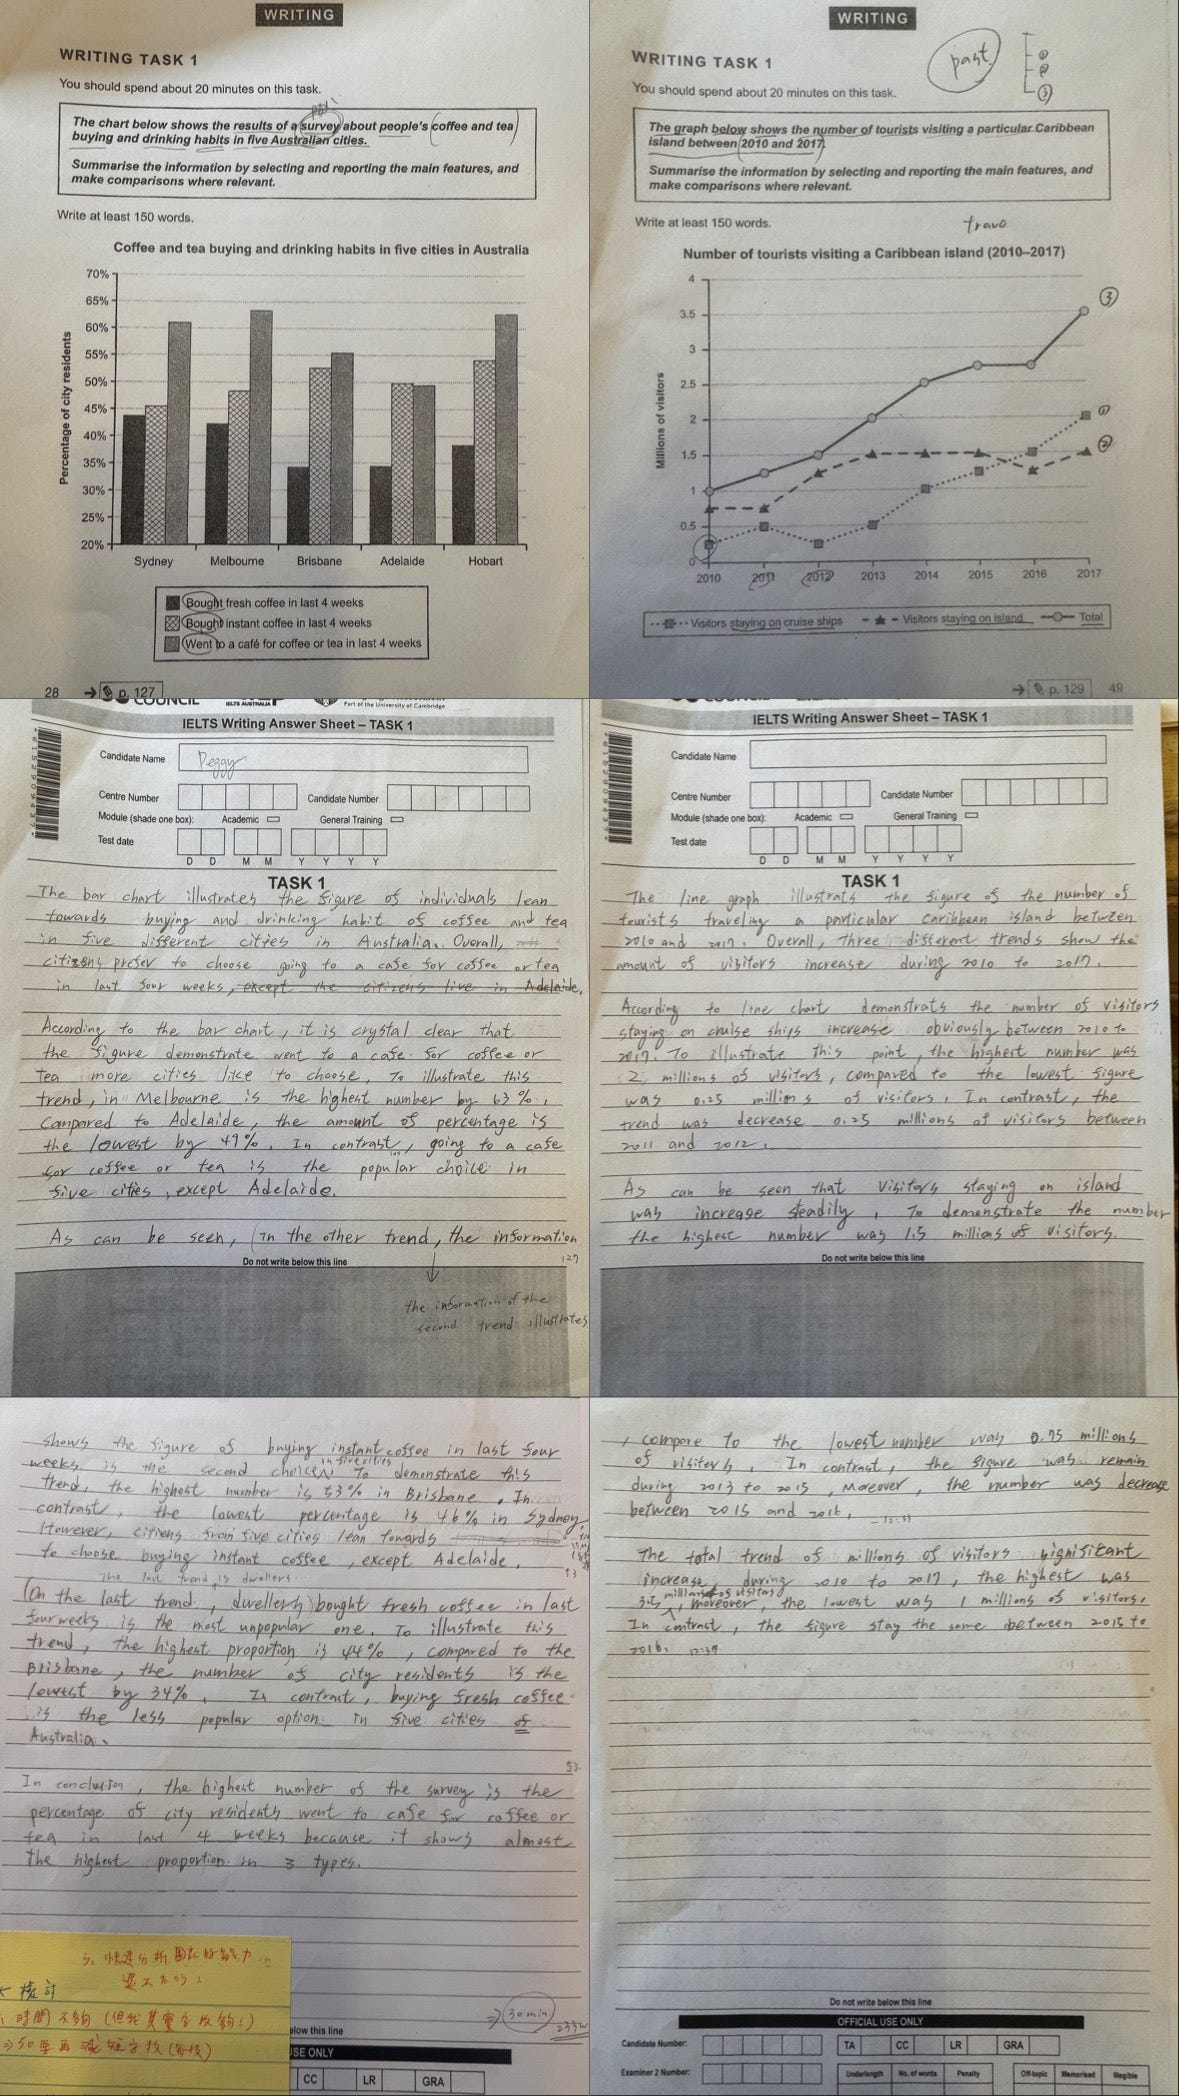 WRITING
WRITING TASK 1
You should spend about 20 minutes on this task.
The chart below shows the results of a survey about people's coffee and tea
buying and drinking habits in five Australian cities.
Summarise the information by selecting and reporting the main features, and
make comparisons where relevant.
Write at least 150 words.
Coffee and tea buying and drinking habits in five cities in Australia
Percentage of city residents
70%
65%
60%
55%
50%
45%
40%
35%
30%
25%
20%
Sydney Melbourne Brisbane Adelaide Hobart
Bought fresh coffee in last 4 weeks
Bought instant coffee in last 4 weeks
Went to a café for coffee or tea in last 4 weeks
28 p. 127
WRITING
past
① ② ③
WRITING TASK 1
You should spend about 20 minutes on this task.
The graph below shows the number of tourists visiting a particular Caribbean
island between 2010 and 2017.
Summarise the information by selecting and reporting the main features, and
make comparisons where relevant.
Write at least 150 words.
trave
Number of tourists visiting a Caribbean island (2010–2017)
Millions of visitors
4
3.5
3
2.5
2
1.5
1
0.5
0
③
①
②
2010 2011 2012 2013 2014 2015 2016 2017
Visitors staying on cruise ships Visitors staying on island Total
p. 129 49
COUNCIL IELTS AUSTRALIA Part of the University of Cambridge
IELTS Writing Answer Sheet – TASK 1
Candidate Name Peggy
Centre Number Candidate Number
Module (shade one box): Academic General Training
Test date
D D M M Y Y Y Y
TASK 1
The bar chart illustrates the figure of individuals lean
towards buying and drinking habit of coffee and tea
in five different cities in Australia. Overall,
citizens prefer to choose going to a cafe for coffee or tea
in last four weeks, except the citizens live in Adelaide.
According to the bar chart, it is crystal clear that
the figure demonstrate went to a cafe for coffee or
tea more cities like to choose, To illustrate this
trend, in Melbourne is the highest number by 63%,
Compared to Adelaide, the amount of percentage is
the lowest by 49%. In contrast, going to a cafe
for coffee or tea is the popular choice in
five cities, except Adelaide.
As can be seen, (In the other trend, the information
Do not write below this line
127
the information of the
second trend illustrates
IELTS Writing Answer Sheet – TASK 1
Candidate Name
Centre Number Candidate Number
Module (shade one box): Academic General Training
Test date
D D M M Y Y Y Y
TASK 1
The line graph illustrats the figure of the number of
tourists traveling a particular Caribbean island between
2010 and 2017. Overall, three different trends show the
amount of visitors increase during 2010 to 2017.
According to line chart demonstrats the number of visitors
staying on cruise ships increase obviously between 2010 to
2017. To illustrate this point, the highest number was
2 millions of visitors, compared to the lowest figure
was 0.25 millions of visitors. In contrast, the
trend was decrease 0.25 millions of visitors between
2011 and 2012.
As can be seen that visitors staying on island
was increase steadily, To demonstrate the number
the highest number was 1.5 millions of visitors.
Do not write below this line
shows the figure of buying instant coffee in last four
weeks is the second choice in five cities To demonstrate this
trend, the highest number is 53% in Brisbane. In
contrast, the lowest percentage is 46% in Sydney.
However, citiens from five cities lean towards
to choose buying instant coffee, except Adelaide.
The last trend is dwellers...
(On the last trend, dwellers) bought fresh coffee in last
four weeks is the most unpopular one. To illustrate this
trend, the highest proportion is 44%, compared to the
Brisbane, the number of city residents is the
lowest by 34%. In contrast, buying fresh coffee
is the less popular option in five cities of
Australia.
53
In conclusion, the highest number of the survey is the
percentage of city residents went to cafe for coffee or
tea in last 4 weeks because it shows almost
the highest proportion in 3 types.
檢討
時間不夠
⇒ 30 min
233w
below this line
USE ONLY
CC LR GRA
, compare to the lowest number was 0.75 millions
of visitors. In contrast, the figure was remain
during 2013 to 2015, Moreover, the number was decrease
between 2015 and 2016.
The total trend of millions of visitors significant
increase during 2010 to 2017, the highest was
3.5 millions of visitors, moreover, the lowest was 1 millions of visitors.
In contrast, the figure stay the same between 2015 to
2016.
Do not write below this line
OFFICIAL USE ONLY
Candidate Number: TA CC LR GRA
Examiner 2 Number: Underlength No. of words Penalty Off-topic Memorised Illegible